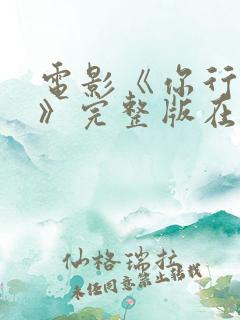 電影《你行
》完整版在
仙格瑞拉
未经同意禁止转载